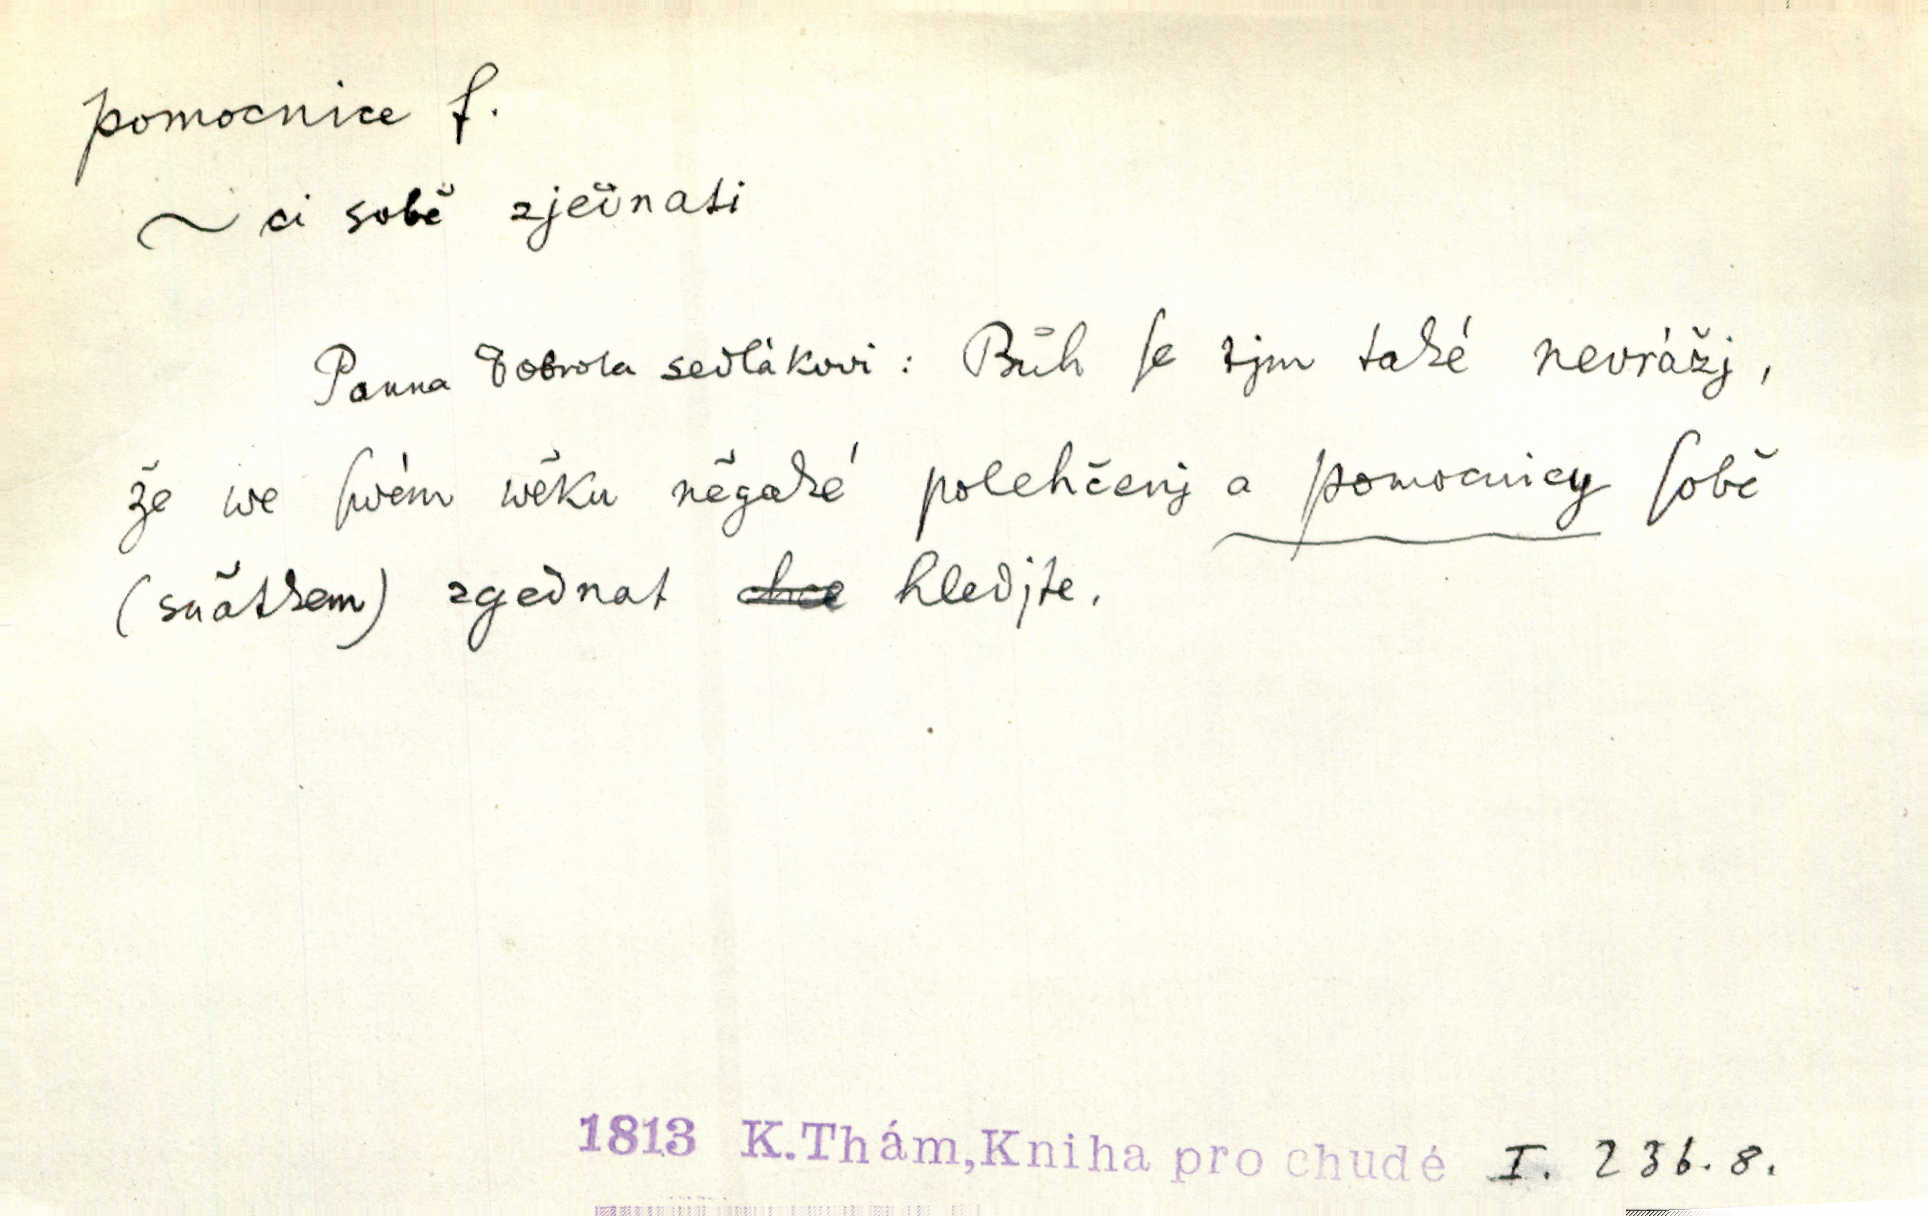 pomocnice f.
~ ci sobě zjednati
Panna Dobrola sedlákovi : Bůh ſe tjm také nevrážj,
že we ſwém wěku něgaké polehčenj a pomocnicy ſobě
(sňatkem) zgednat chce hledjte.
1813 K.Thám,Kniha pro chudé I. 236. 8.